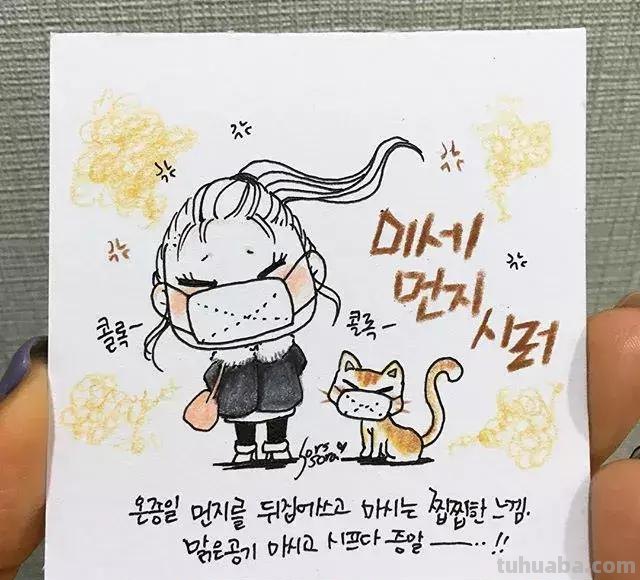 미세
먼지
시러
콜록~
콜록~
온종일 먼지를 뒤집어쓰고 마시는 찝찝한 느낌.
맑은공기 마시고 시프다 종알──··!!
tuhuaba.com